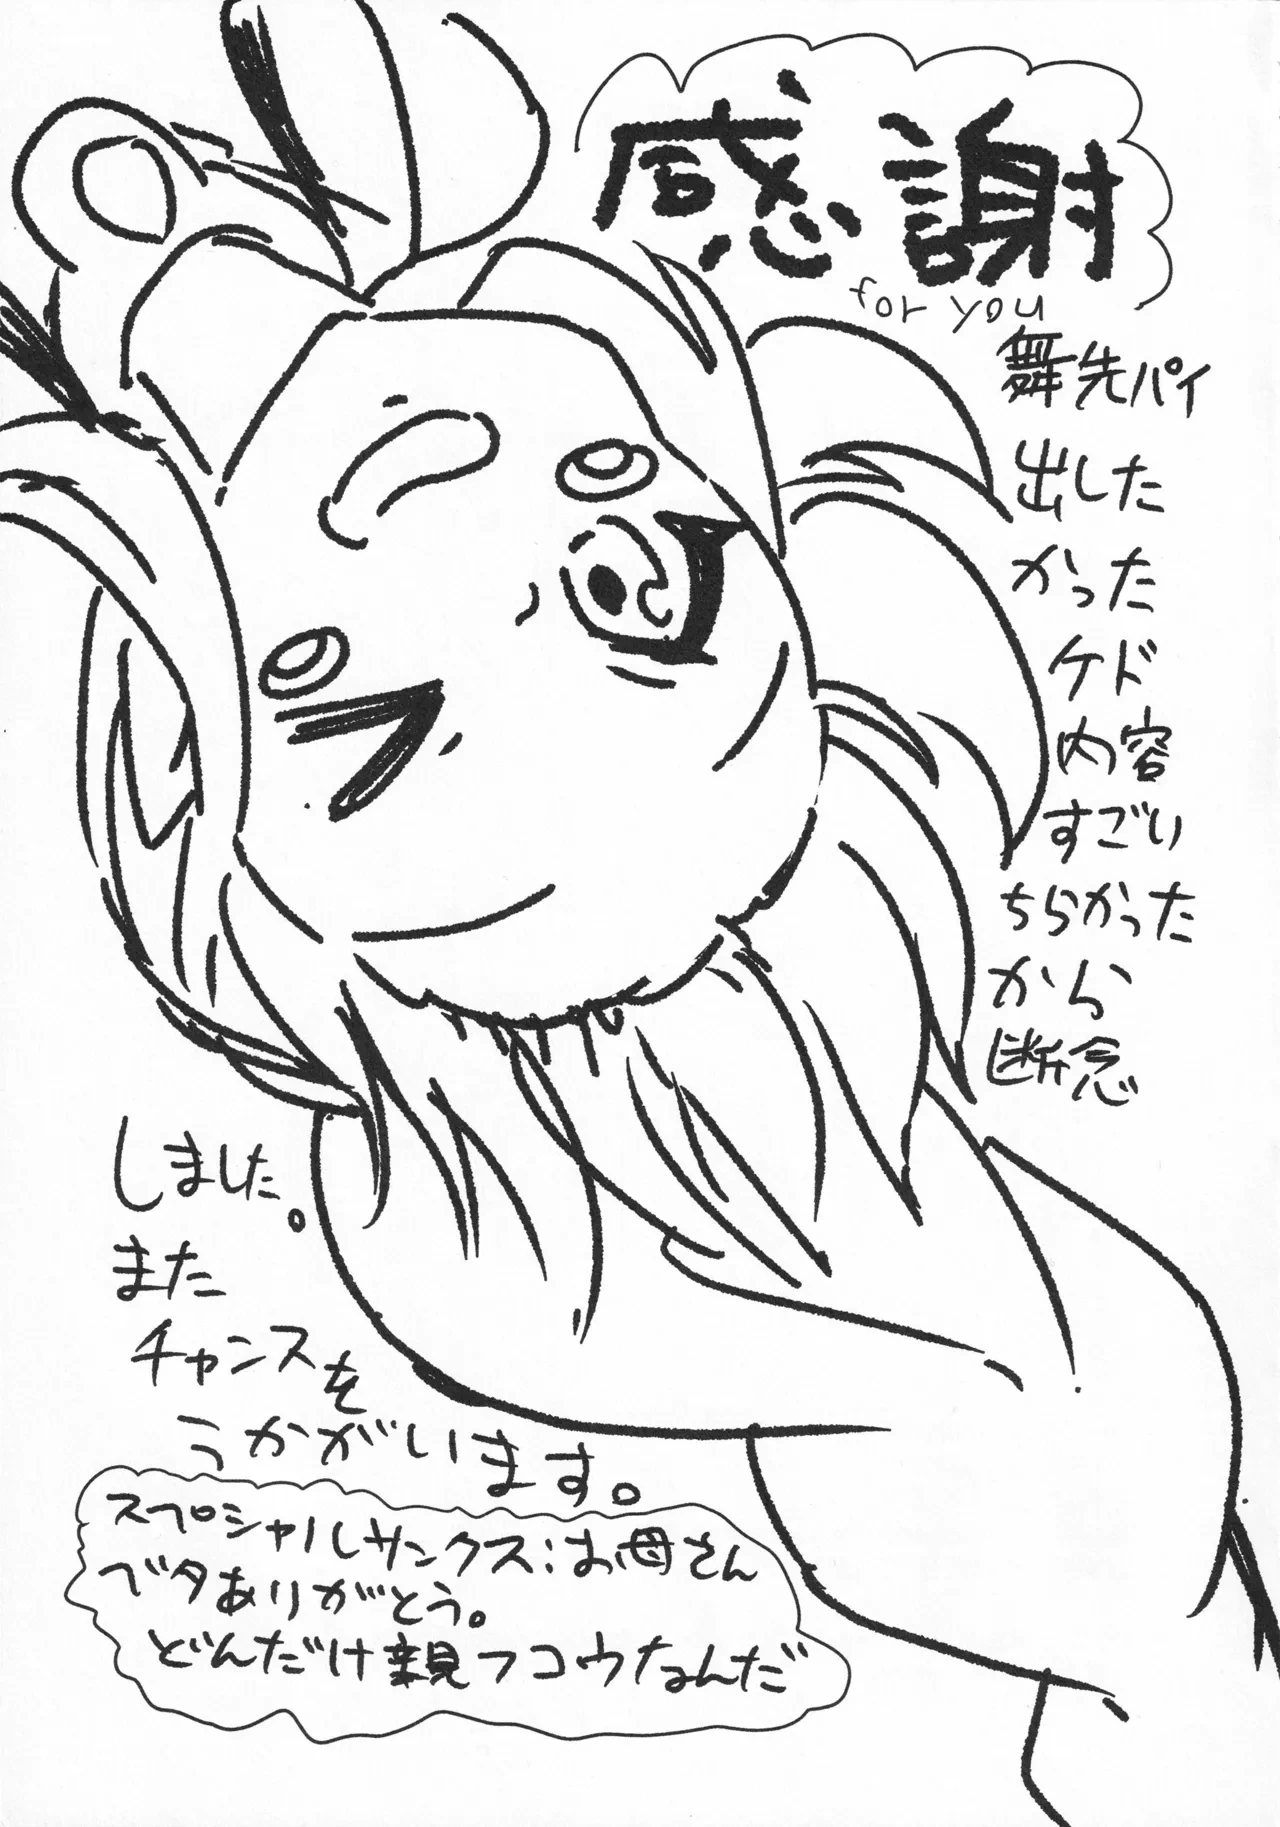 感謝
for you
舞先パイ
出した
かった
ケド
内容
すごい
ちらかった
から
断念
しました。
また
チャンスを
うかがいます。
スペシャルサンクス:お母さん
ベタありがとう。
どんだけ親フコウなんだ